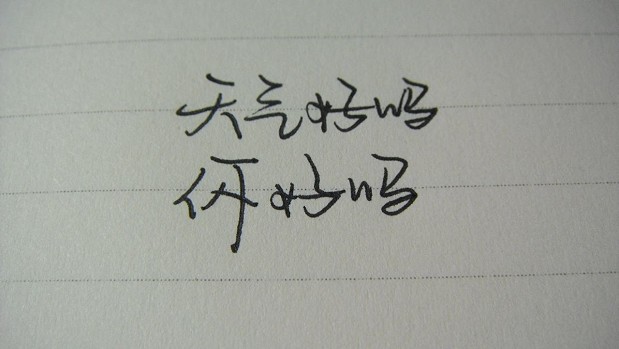 天气好吗
你好吗